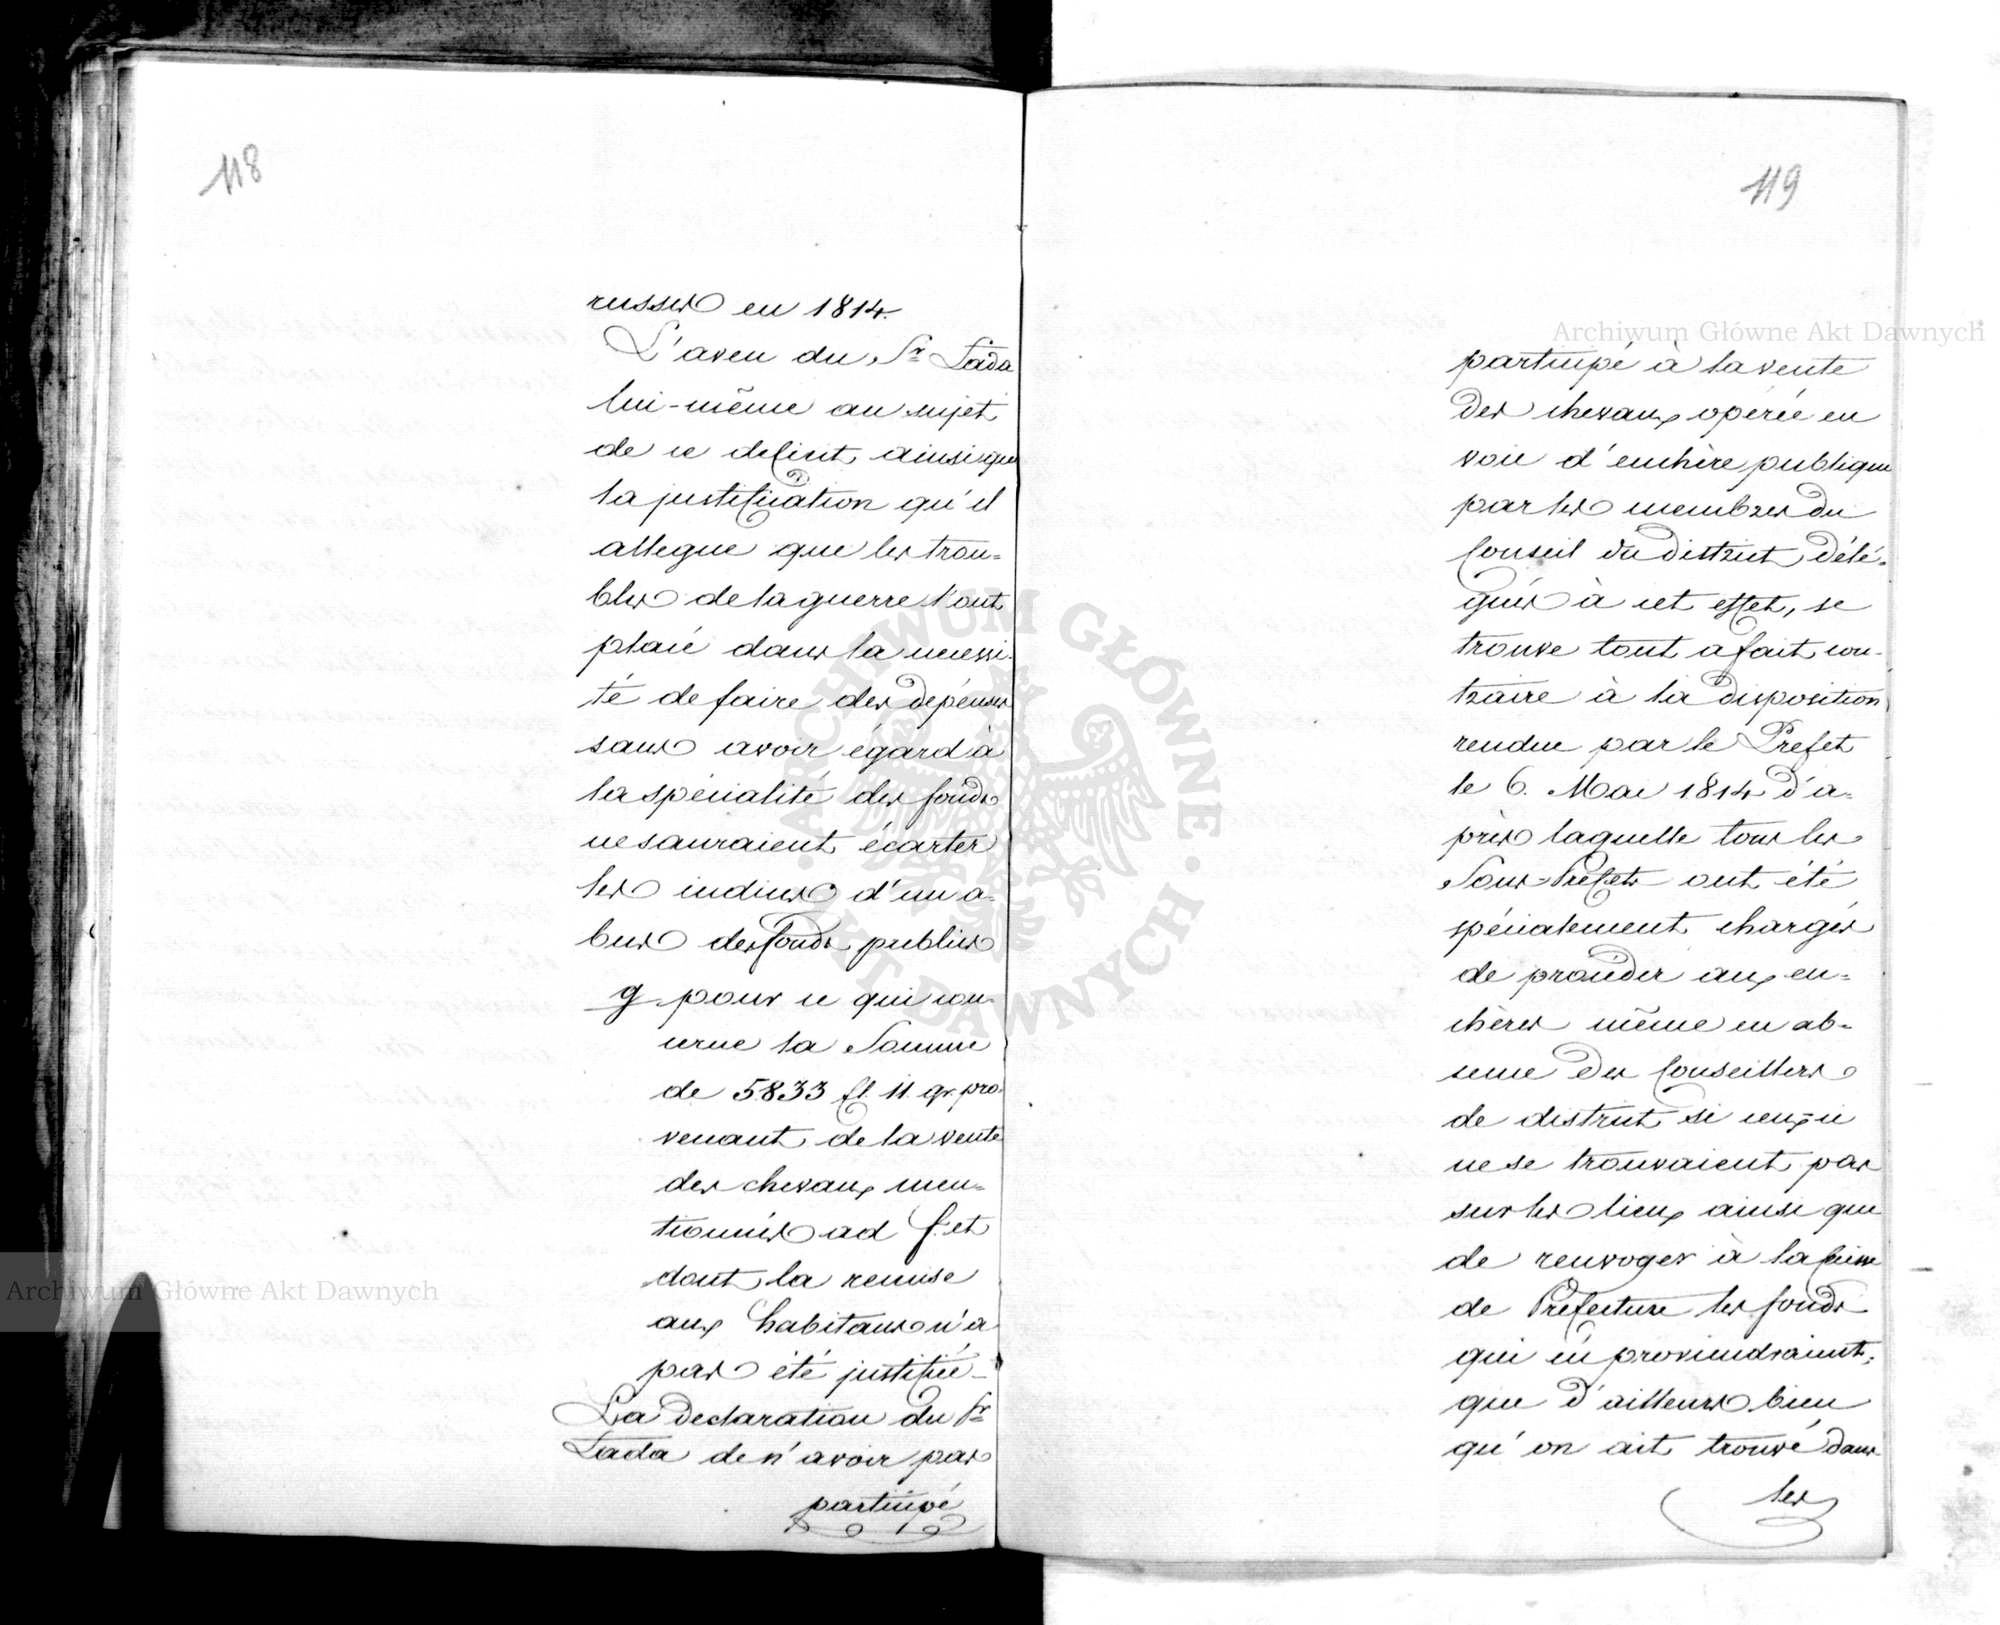 118
russes en 1814.
L'aveu du Sr Łada
lui-même au sujet
de ce deficit, ainsi que
la justification qu'il
allegue que les trou=
bles de la guerre l'ont
placé dans la necessi-
té de faire des dépenses
sans avoir égard à
la spécialité des fonds
ne sauraient écarter
les indices d'un a-
bus des fonds publics
g. pour ce qui con-
cerne la Somme
de 5833 fl. 11. gr. pro-
venant de la vente
des chevaux men=
tionnés ad f. et
dont la remise
aux habitans n'a
pas été justifiée_
La declaration du Sr
Łada de n'avoir pas
participé
119
participé à la vente
des chevaux operée en
voie d'enchère publique
par les membres du
Conseil du district délé=
gués à cet effet, se
trouve tout a fait con-
traire à la disposition
rendue par le Prefet
le 6. Mai 1814 d'a=
près laquelle tous les
Sous=Prefets ont été
spécialement chargés
de proceder aux en=
chères même en ab=
sence des Conseillers
de district si ceux-ci
ne se trouvaient pas
sur les lieux ainsi que
de renvoyer à la Caisse
de Prefecture les fonds
qui en proviendraient;
que d'ailleurs bien
qu'on ait trouvé dans
les
Archiwum Główne Akt Dawnych
Archiwum Główne Akt Dawnych
ARCHIWUM GŁÓWNE · AKT DAWNYCH ·